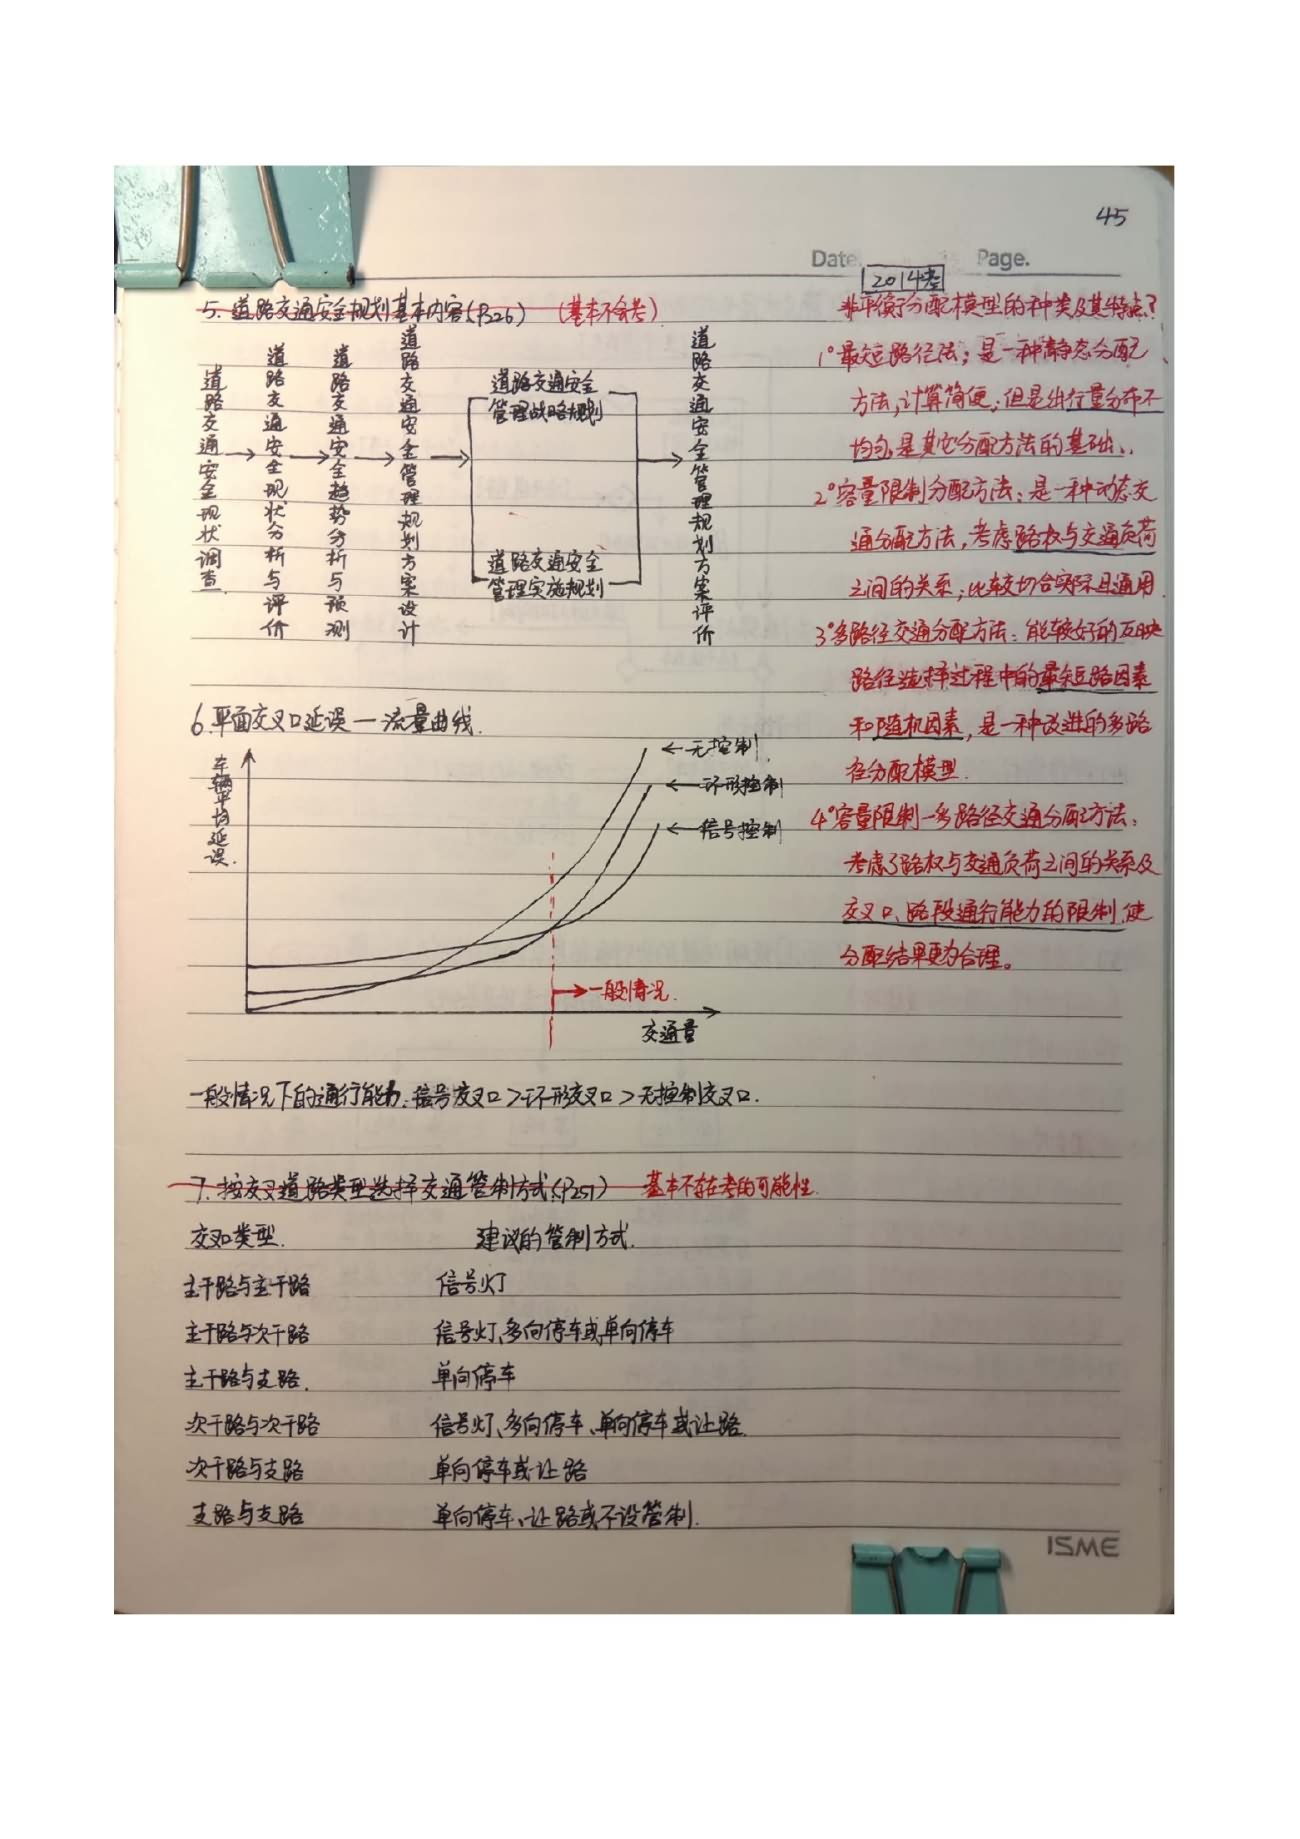 45
Date. Page.
2014考
5. 道路交通安全规划基本内容(P226) (基本不会考)
道路交通安全现状调查
道路交通安全现状分析与评价
道路交通安全趋势分析与预测
道路交通安全管理规划方案设计
道路交通安全
管理战略规划
道路交通安全
管理实施规划
道路交通安全管理规划方案评价
非平衡分配模型的种类及其特点?
1°最短路径法:是一种静态分配
方法,计算简便,但是出行量分布不
均匀,是其它分配方法的基础.
2°容量限制分配方法:是一种动态交
通分配方法,考虑路权与交通负荷
之间的关系,比较切合实际且通用.
3°多路径交通分配方法:能较好的反映
路径选择过程中的最短路因素
和随机因素,是一种改进的多路
径分配模型.
4°容量限制—多路径交通分配方法:
考虑了路权与交通负荷之间的关系及
交叉口、路段通行能力的限制,使
分配结果更为合理。
6.平面交叉口延误—流量曲线.
车辆平均延误.
←无控制
←环形控制
←信号控制
→一般情况.
交通量
一般情况下的通行能力:信号交叉口>环形交叉口>无控制交叉口.
7.按交叉道路类型选择交通管制方式(P251) 基本不存在考的可能性.
交叉口类型. 建议的管制方式.
主干路与主干路 信号灯
主干路与次干路 信号灯、多向停车或单向停车
主干路与支路. 单向停车
次干路与次干路 信号灯、多向停车、单向停车或让路.
次干路与支路 单向停车或让路
支路与支路 单向停车、让路或不设管制.
ISME